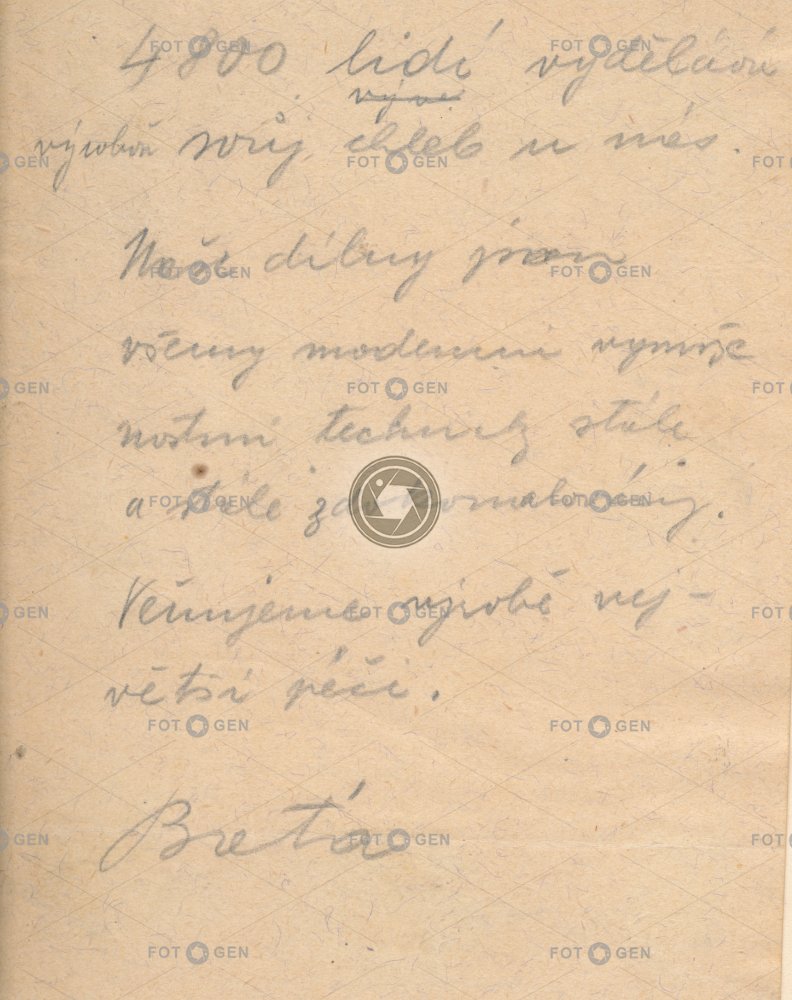 4800 lidí vydělává
výrobou svůj chléb u nás.
Naše dílny jsou
všemy moderními vymože
nostmi techniky stále
a stále zdokonalovány.
Věnujeme výrobě nej-
větší péči.